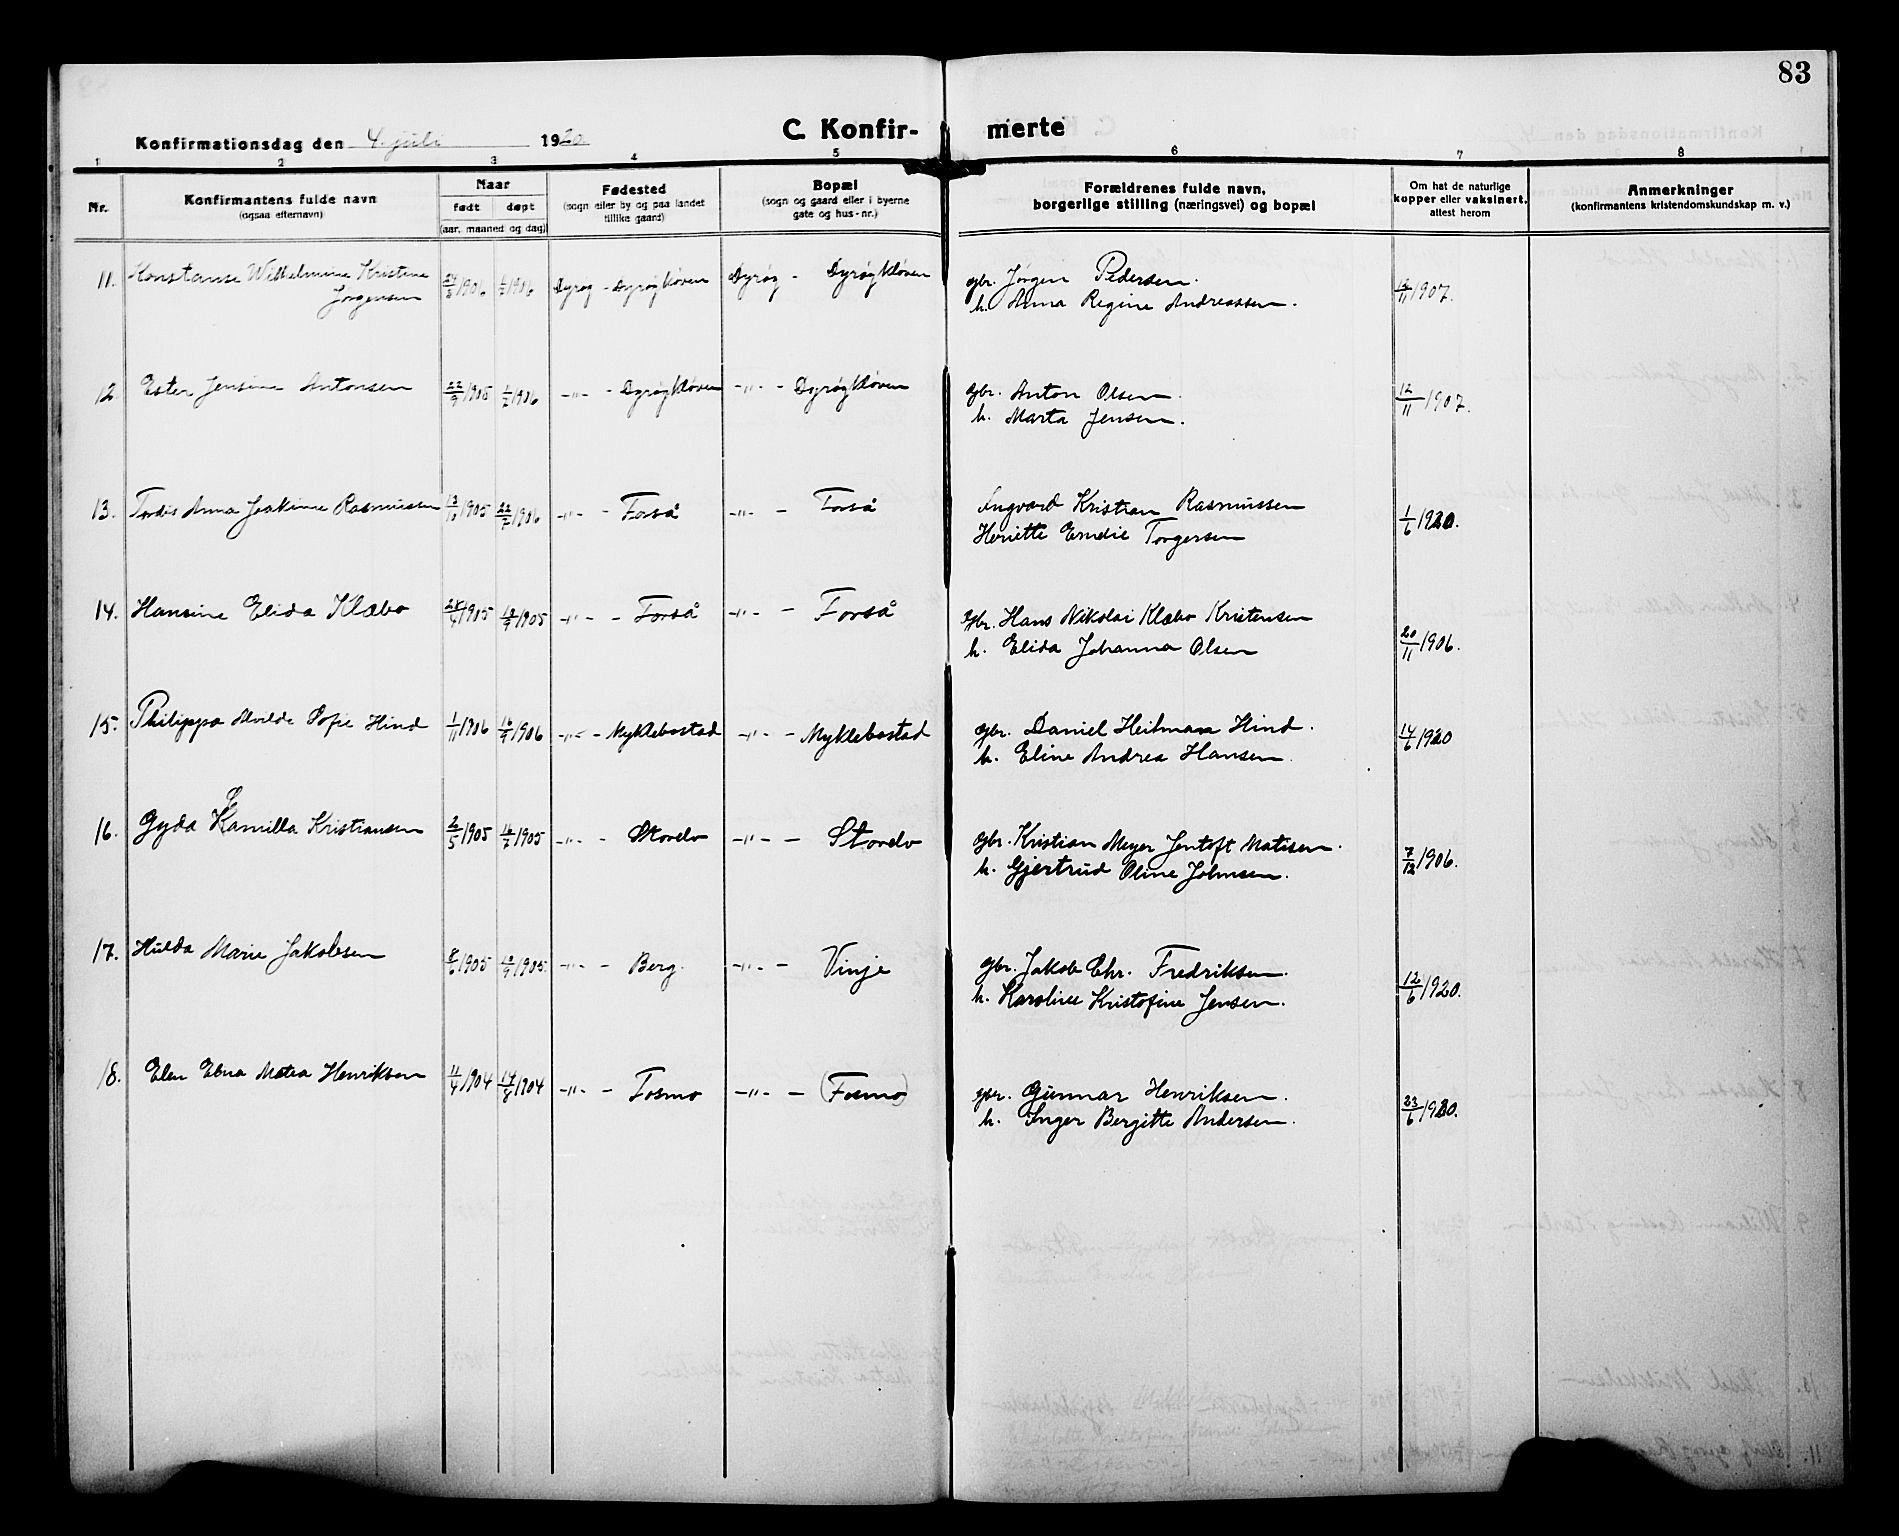 83
C. Konfir- merte
Konfirmationsdag den 4. juli 1920
1 2 3 4 5 6 7 8
Nr.
Konfirmantens fulde navn
(ogsaa efternavn)
Naar
født døpt
(aar, maaned og dag)
Fødested
(sogn eller by og paa landet
tillike gaard)
Bopæl
(sogn og gaard eller i byerne
gate og hus-nr.)
Forældrenes fulde navn,
borgerlige stilling (næringsvei) og bopæl
Om hat de naturlige
kopper eller vaksinert,
attest herom
Anmerkninger
(konfirmantens kristendomskundskap m. v.)
11. Konstanse Wilhelmine Kristine Jørgensen /1906 /1906 Dyrøy - Dyrøykløven Dyrøy - Dyrøykløven
gbr. Jørgen Pedersen.
h. Anna Regine Andreassen. /11 1907.
12. Ester Jensine Antonsen 22/9 1905 1/2 1906 -"- - Dyrøykløven -"- - Dyrøykløven
gbr. Anton Olsen.
h. Marta Jensen. 12/11 1907.
13. Tordis Anna Joakime Rasmussen 13/10 1905 22/2 1906 -"- - Forså -"- - Forså
Ingvard Kristian Rasmussen
Heriette Emelie Torgersen 1/6 1920.
14. Hansine Elida Klæbo /1905 /9 1905 -"- - Forså -"- - Forså
gbr. Hans Nikolai Klæbo Kristensen
h. Elida Johanna Olsen 20/11 1906.
15. Philippa Alvilde Sofie Hind 1/11 1906 16/9 1906 -"- - Myklebostad -"- - Myklebostad
gbr. Daniel Heitman Hind.
h. Eline Andrea Hansen. 14/6 1920
16. Gyda E Kamilla Kristiansen 2/5 1905 16/7 1905 -"- - Storelv -"- - Storelv
gbr. Kristian Meyer Jentoft Matisen.
h. Gjertrud Oline Johnsen. 7/12 1906.
17. Hulda Marie Jakobsen 8/6 1905 /9 1905. -"- - Berg. -"- - Vinje
gbr. Jakob Chr. Fredriksen.
h. Karoline Kristofine Jensen. 12/6 1920.
18. Elen Edna Matea Henriksen 11/4 1904 14/8 1904 -"- - Fosmo -"- - (Fosmo)
gbr. Gunnar Henriksen.
h. Inger Bergitte Andersen. 23/6 1920.